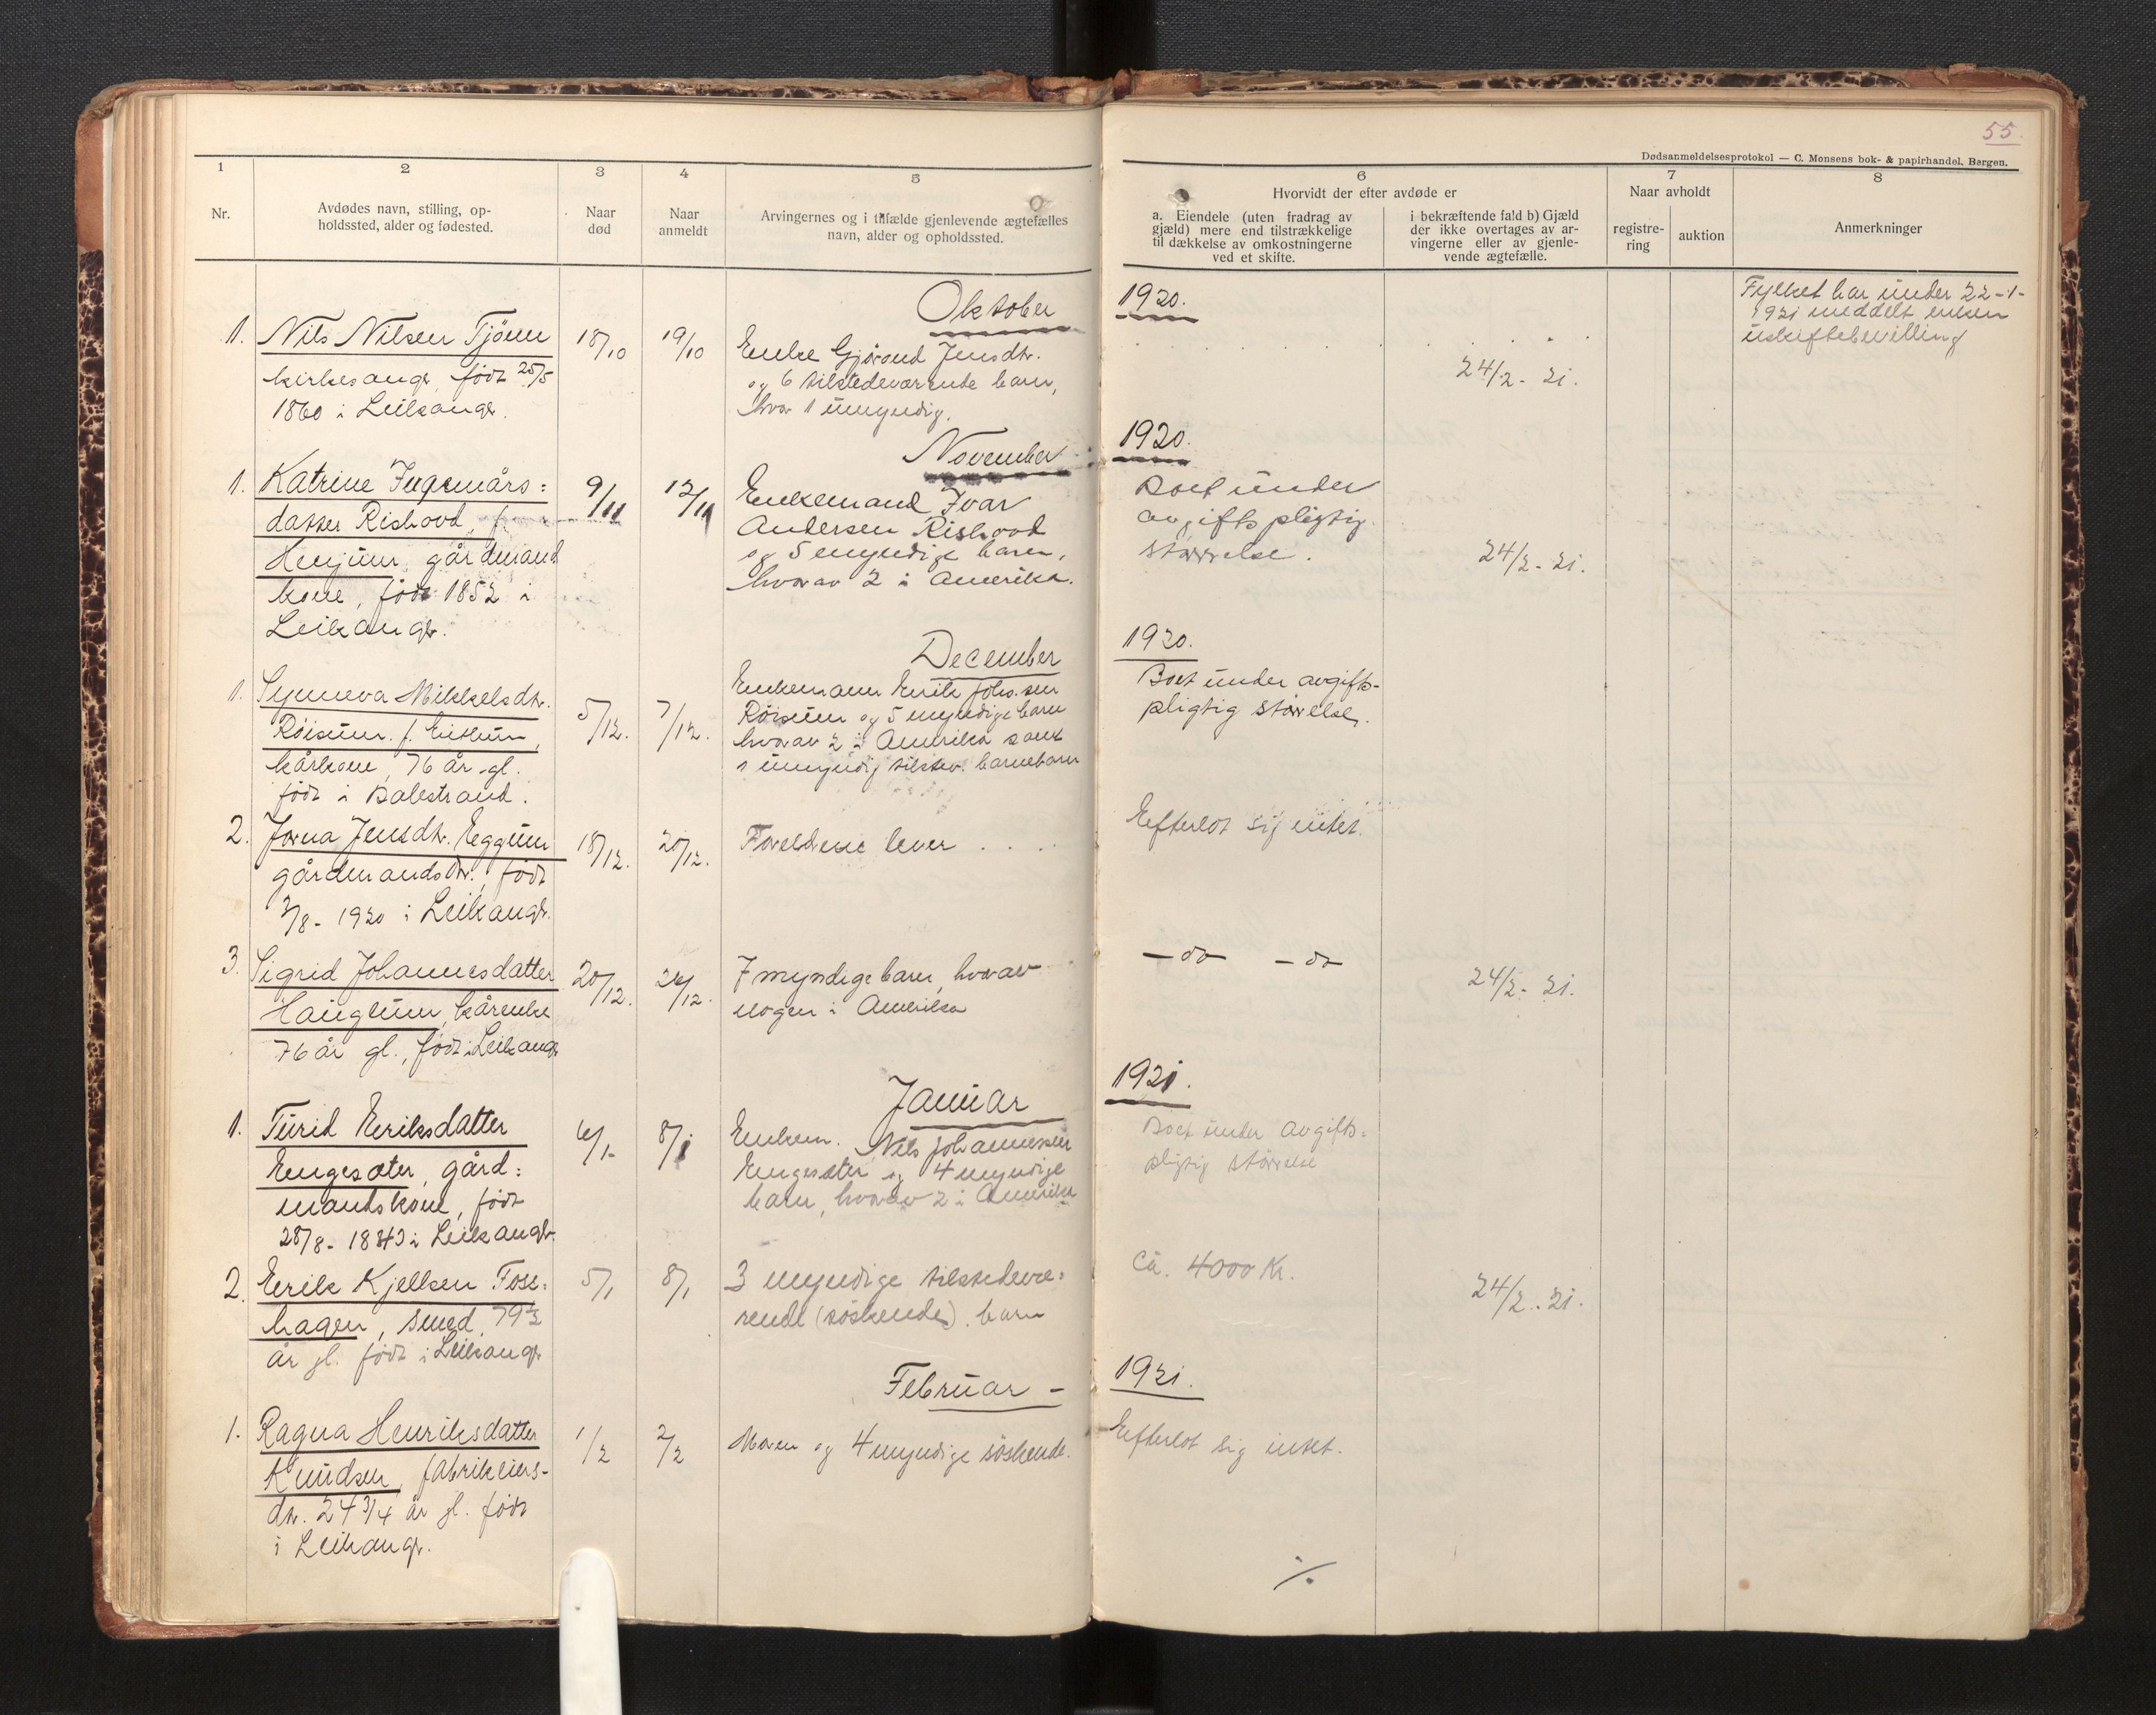 55.
Dødsanmeldelsesprotokol — C. Monsens bok- & papirhandel, Bergen.
1 2 3 4 5 6 7 8
Nr.
Avdødes navn, stilling, op-
holdssted, alder og fødested.
Naar
død
Naar
anmeldt
Arvingernes og i tilfælde gjenlevende ægtefælles
navn, alder og opholdssted.
Hvorvidt der efter avdøde er
a. Eiendele (uten fradrag av
gjæld) mere end tilstrækkelige
til dækkelse av omkostningerne
ved et skifte.
i bekræftende fald b) Gjæld
der ikke overtages av ar-
vingerne eller av gjenle-
vende ægtefælle.
Naar avholdt
registre-
ring
auktion
Anmerkninger
Oktober 1920.
1. Nils Nilsen Tjönn
kirkesangr, född 25/5
1860 i Leikangr.
18/10
19/10
Enke Gjörond Jensdtr.
og 6 tilstedeværende barn,
hvor 1 umyndig.
24/2- 21.
Fylket har under 22-1-
1921 meddelt enken
uskiftebevilling
November 1920.
1. Katrine Ingemårs=
datter Rishovd, f.
Henjum, gårdmands
kone, född 1852 i
Leikangr.
9/11
12/11
Enkemand Ivar
Andersen Rishovd
og 5 myndige barn,
hvorav 2 i Amerika.
Boet under
avgiftspligtig
størrelse.
24/2- 21.
December 1920.
1. Synneva Mikkelsdtr.
Röisum f. Eitrun,
kårkone, 76 år gl.
född i Balestrand.
5/12.
7/12.
Enkemann Eirik Johs.sen
Röisum og 5 myndige barn
hvorav 2 i Amerika samt
1 umyndig tilstev. barnebarn
Boet under avgifts-
pligtig størrelse.
2. Jorna Jensdtr. Eggum
gårdmandsdtr., född
3/8- 1920 i Leikangr.
18/12.
20/12.
Foreldrene lever . . . .
Eefterlot sig intet.
3. Sigrid Johannesdatter
Hauglum, kårenke
76 år gl., född i Leikangr
20/12.
24/12.
7 myndige barn, hvorav
nogen i Amerika
— do — — do —
24/2- 21.
Januar 1921.
1. Turid Eeriksdatter
Engesæter, gård=
mandskone, född
28/8- 1843 i Leikangr.
6/1-
8/1
Enkem. Nils Johannessen
Engesæter og 4 myndige
barn, hvorav 2 i Amerika
Boet under avgifts=
pligtig størrelse
2. Eerik Kjellsen Foss=
hagen, smed, 79 1/2
år gl. född i Leikangr
5/1
8/1
3 myndige tilstedevæ=
rende (söskende) barn
Ca. 4000 Kr.
24/2.. 21.
Februar - 1921.
1. Ragna Henriksdatter
Knudsen, fabrikeiers-
dtr. 24 3/4 år gl. född
i Leikangr.
1/2
2/2
Moren og 4 myndige söskende.
Eefterlot sig intet.